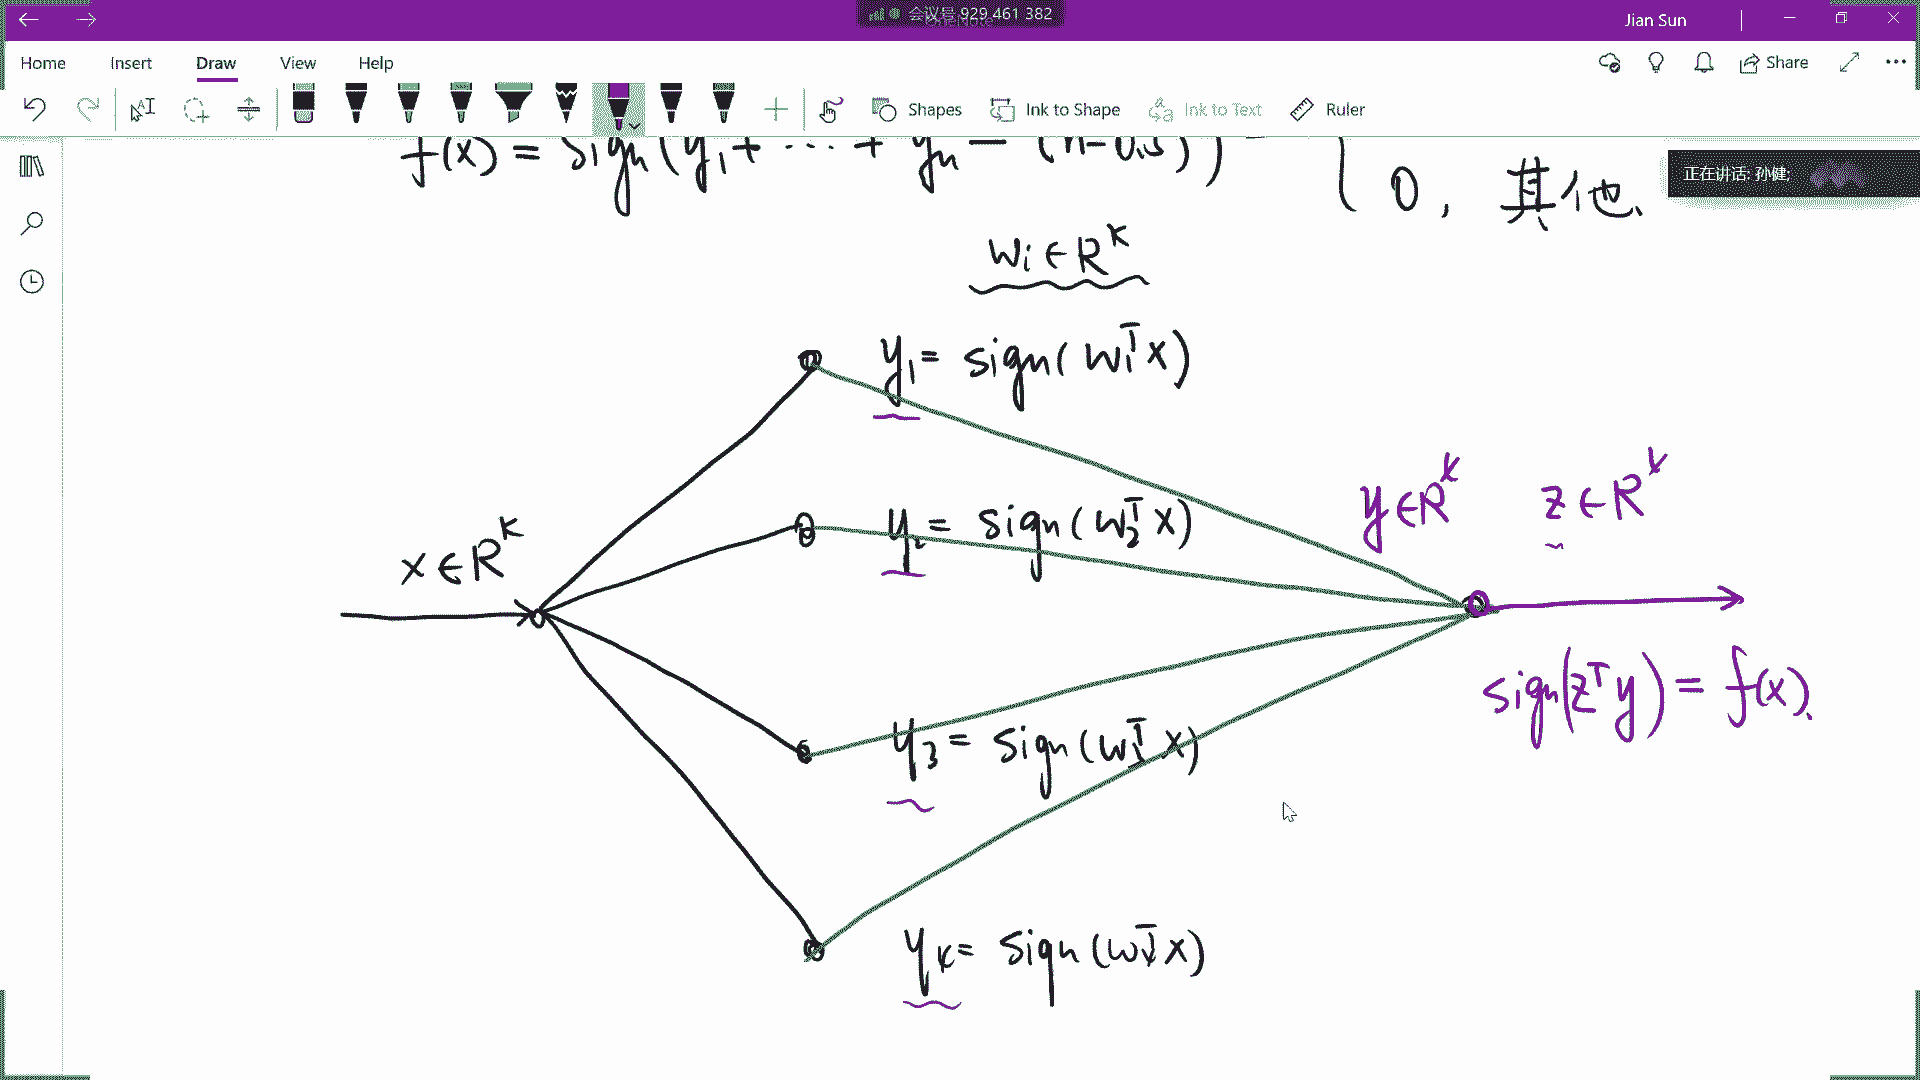 会议号 929 461 382
Jian Sun
Home Insert Draw View Help
Share
Shapes Ink to Shape Ink to Text Ruler
正在讲话: 孙健;
f(x) = sign(y₁ + ... + yₙ - (n-0.5)) =
0, 其他.
wᵢ ∈ Rᴷ
y₁ = sign(w₁ᵀx)
y ∈ Rᴷ z ∈ Rᴷ
x ∈ Rᴷ
y₂ = sign(w₂ᵀx)
sign(zᵀy) = f(x).
y₃ = sign(w₃ᵀx)
yₖ = sign(wₖᵀx)